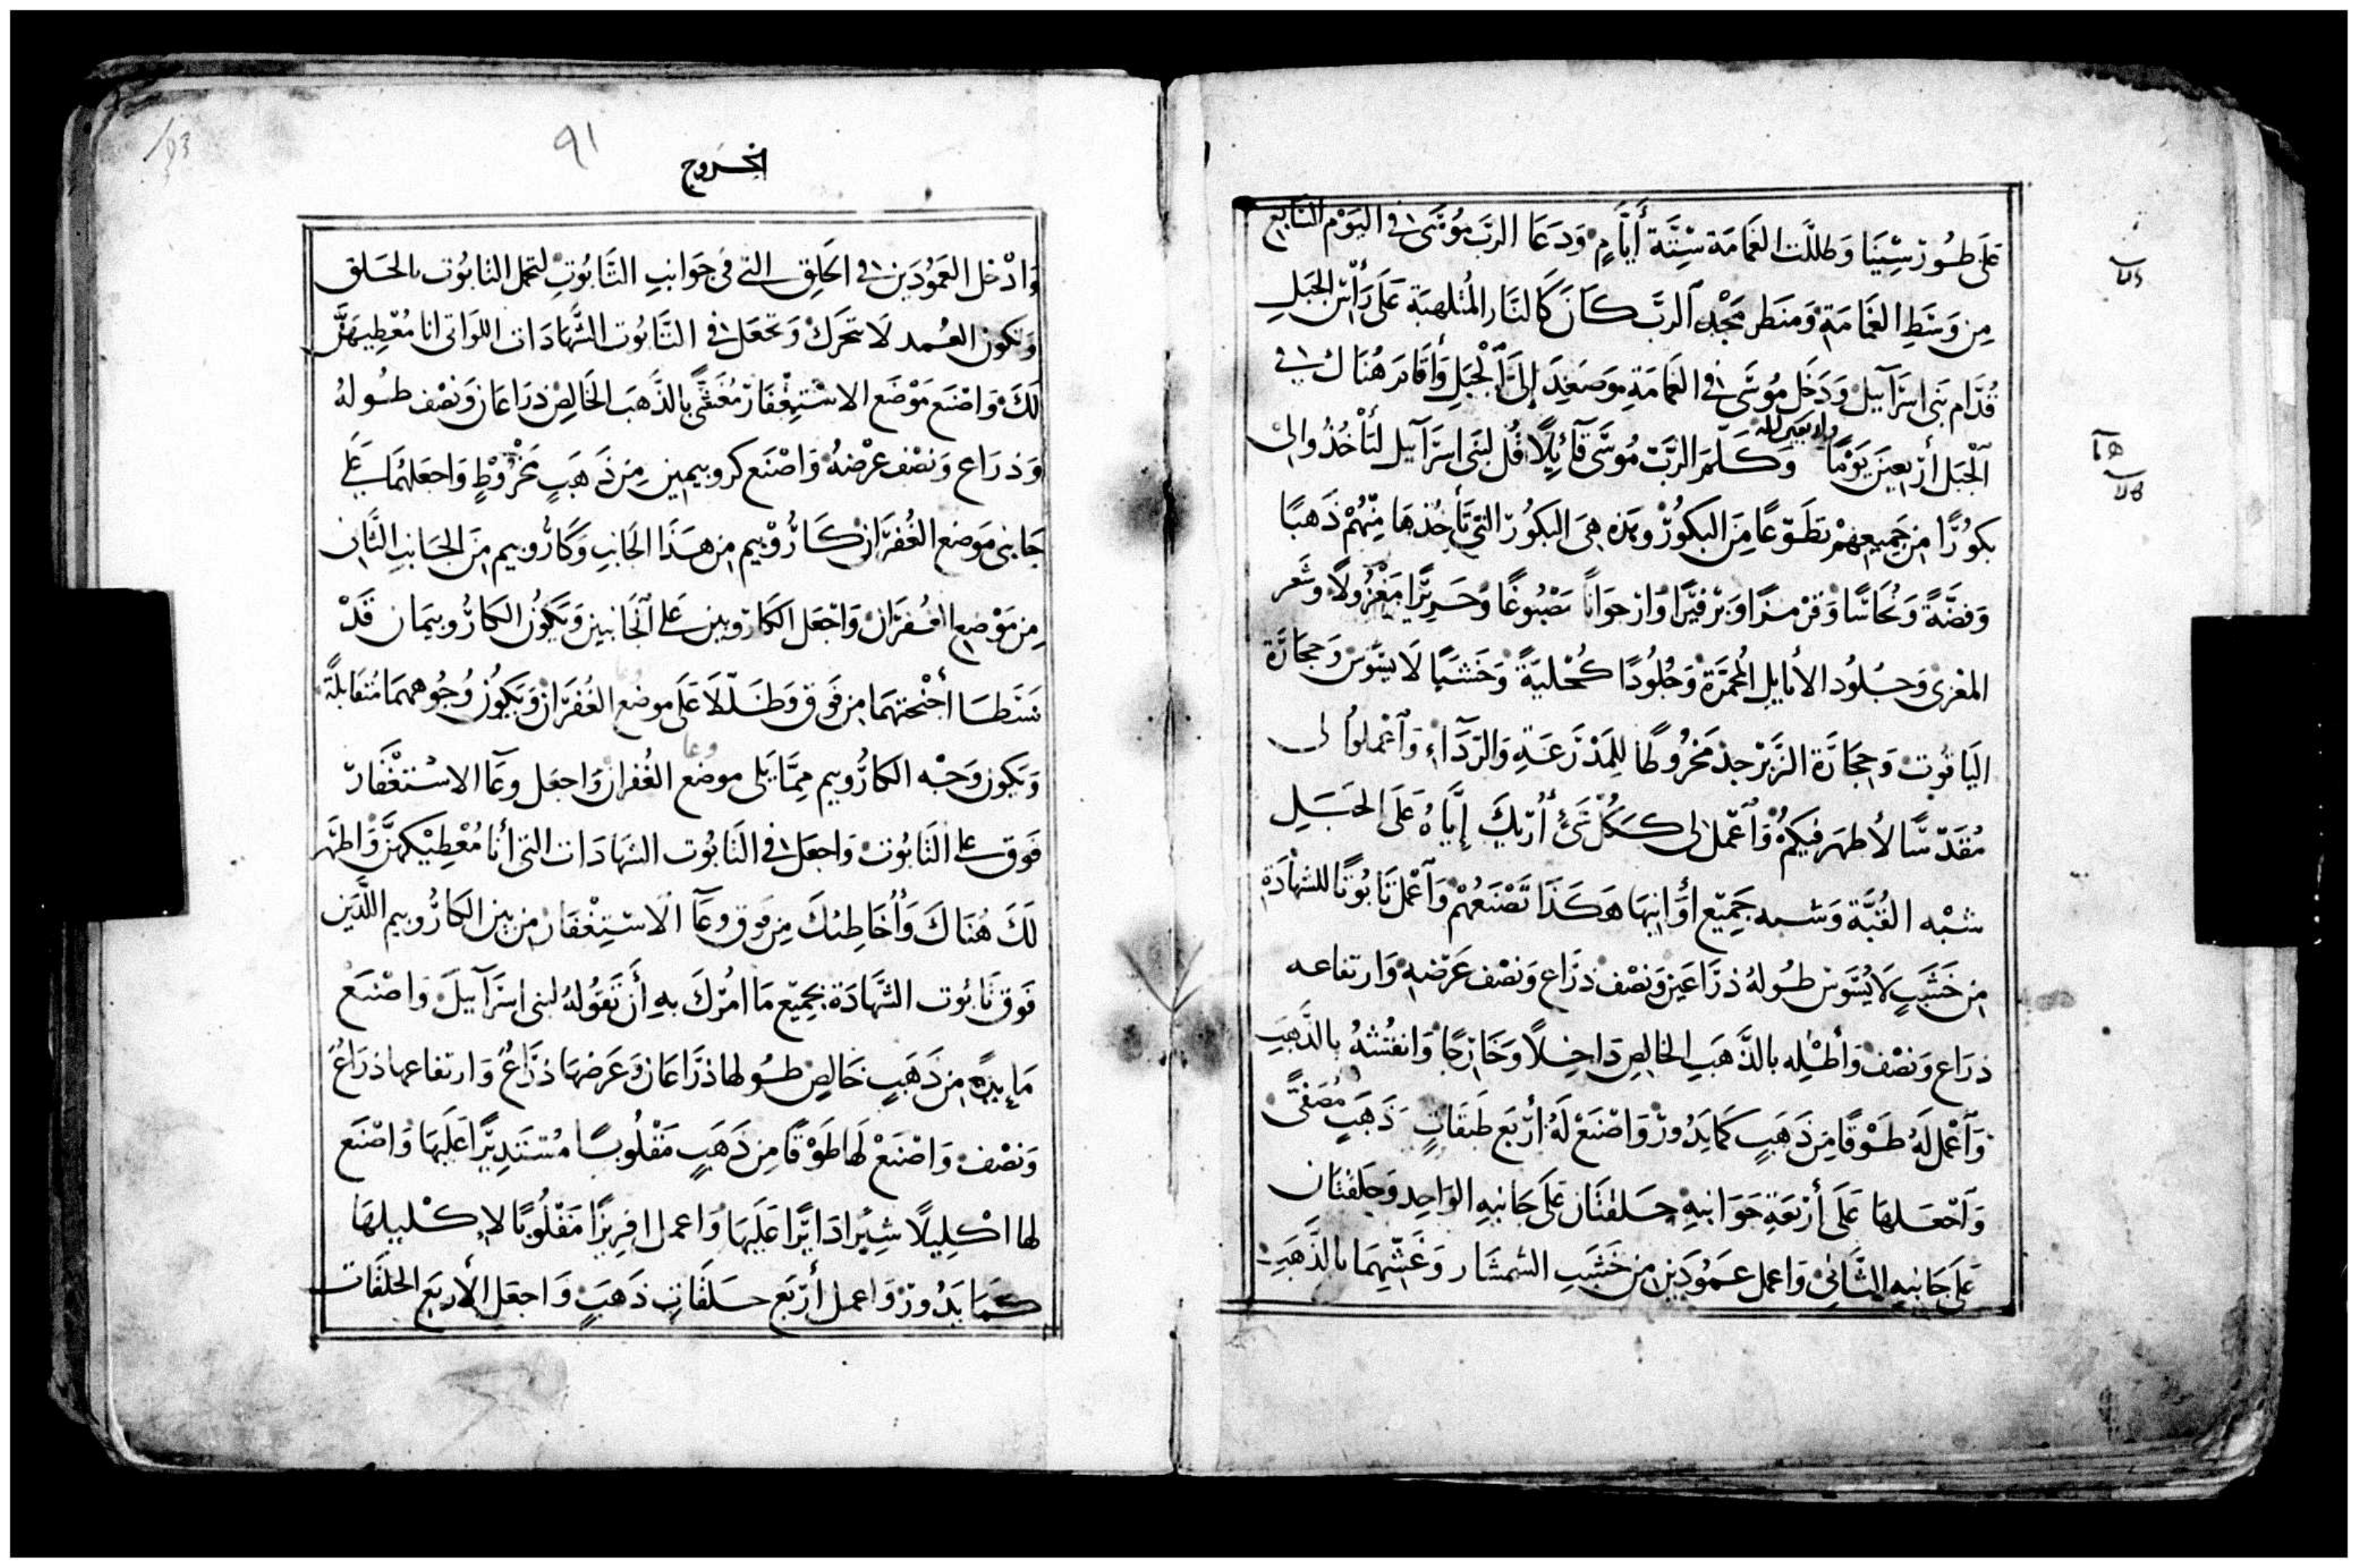 على طور سينا وظللت الغمامة ستة أيام ودعا الرب موسى في اليوم السابع
من وسط الغمامة ومنظر مجد الرب كان كالنار المتلهبة على رأس الجبل
قدام بنى اسرآييل ودخل موسى في الغمامة وصعد إلى الجبل وأقام هناك في
واربعين ليله
الجبل أربعين يومًا وكلم الرب موسى قآئلًا قل لبنى اسرآييل لتأخذوا لى
بكورًا من جميعهم تطوعًا من البكور وهذه هى البكور التى تأخذها منهم ذهبًا
وفضة ونحاسًا وقرمزا وبرفيرا وارجوانًا مصبوغًا وحريرًا مغزولًا وشعر
المعزى وجلود الأيايل المحمرة وجلودًا كحلية وخشبًا لا يسوس وحجارة
الياقوت وحجارة الزبرجد مخروطا للمدرعة والردآء وآعملوا لى
مقدسًا لأظهر فيكم وآعمل لى ككل شئ أريك إياه على الجبل
شبه القبة وشبه جميع أوانيها هكذا تصنعهم وآعمل تابوتًا للشهادة
من خشب لا يسوس طوله ذراعين ونصف ذراع ونصف عرضه وارتفاعه
ذراع ونصف وأطليه بالذهب الخالص داخلًا وخارجًا وانقشه بالذهب
وآعمل له طوقا من ذهب كما يدور واصنع له أربع طبقات ذهب مصفى
وآجعلها على أربعة جوانبه حلقتان على جانبه الواحد وحلقتان
على جانبه الثاني واعمل عمودين من خشب الشمشار وغشيهما بالذهب
٩١
الخروج
وادخل العمودين في الحلق التى فى جوانب التابوت لتحمل التابوت بالحلق
وتكون العمد لا تتحرك وتجعل في التابوت الشهادات اللواتى انا معطيهن
لك واصنع موضع الاستغفار مغشى بالذهب الخالص ذراعان ونصف طوله
وذراع ونصف عرضه واصنع كروبيمين من ذهب مخروط واجعلهما على
جانبى موضع الغفران كاروبيم من هذا الجانب وكاروبيم من الجانب الثان
من موضع الغفران واجعل الكاروبين على آلجانبين ويكون الكاروبيمان قد
بسطا أجنحتهما من فوق وظللا على موضع الغفران ويكون وجوههما متقابلة
ويكون وجه الكاروبيم مما يلى موضع الغفران واجعل وعآ الاستغفار
فوق على التابوت واجعل في التابوت الشهادات التى أنا معطيكهن واظهر
لك هناك وأخاطبك من فوق وعآ الاستغفار من بين الكاروبيم اللذين
فوق تابوت الشهادة بجميع ما امرك به أن تقوله لبنى اسرآييل واصنع
مايدة من ذهب خالص طولها ذراعان وعرضها ذراع وارتفاعها ذراع
ونصف واصنع لها طوقا من ذهب مقلوبا مستديرًا عليها واصنع
لها اكليلًا شبرا دايرًا عليها واعمل افريزا مقلوبا لاكليلها
كما يدور واعمل أربع حلقات ذهب واجعل الأربع الحلقات